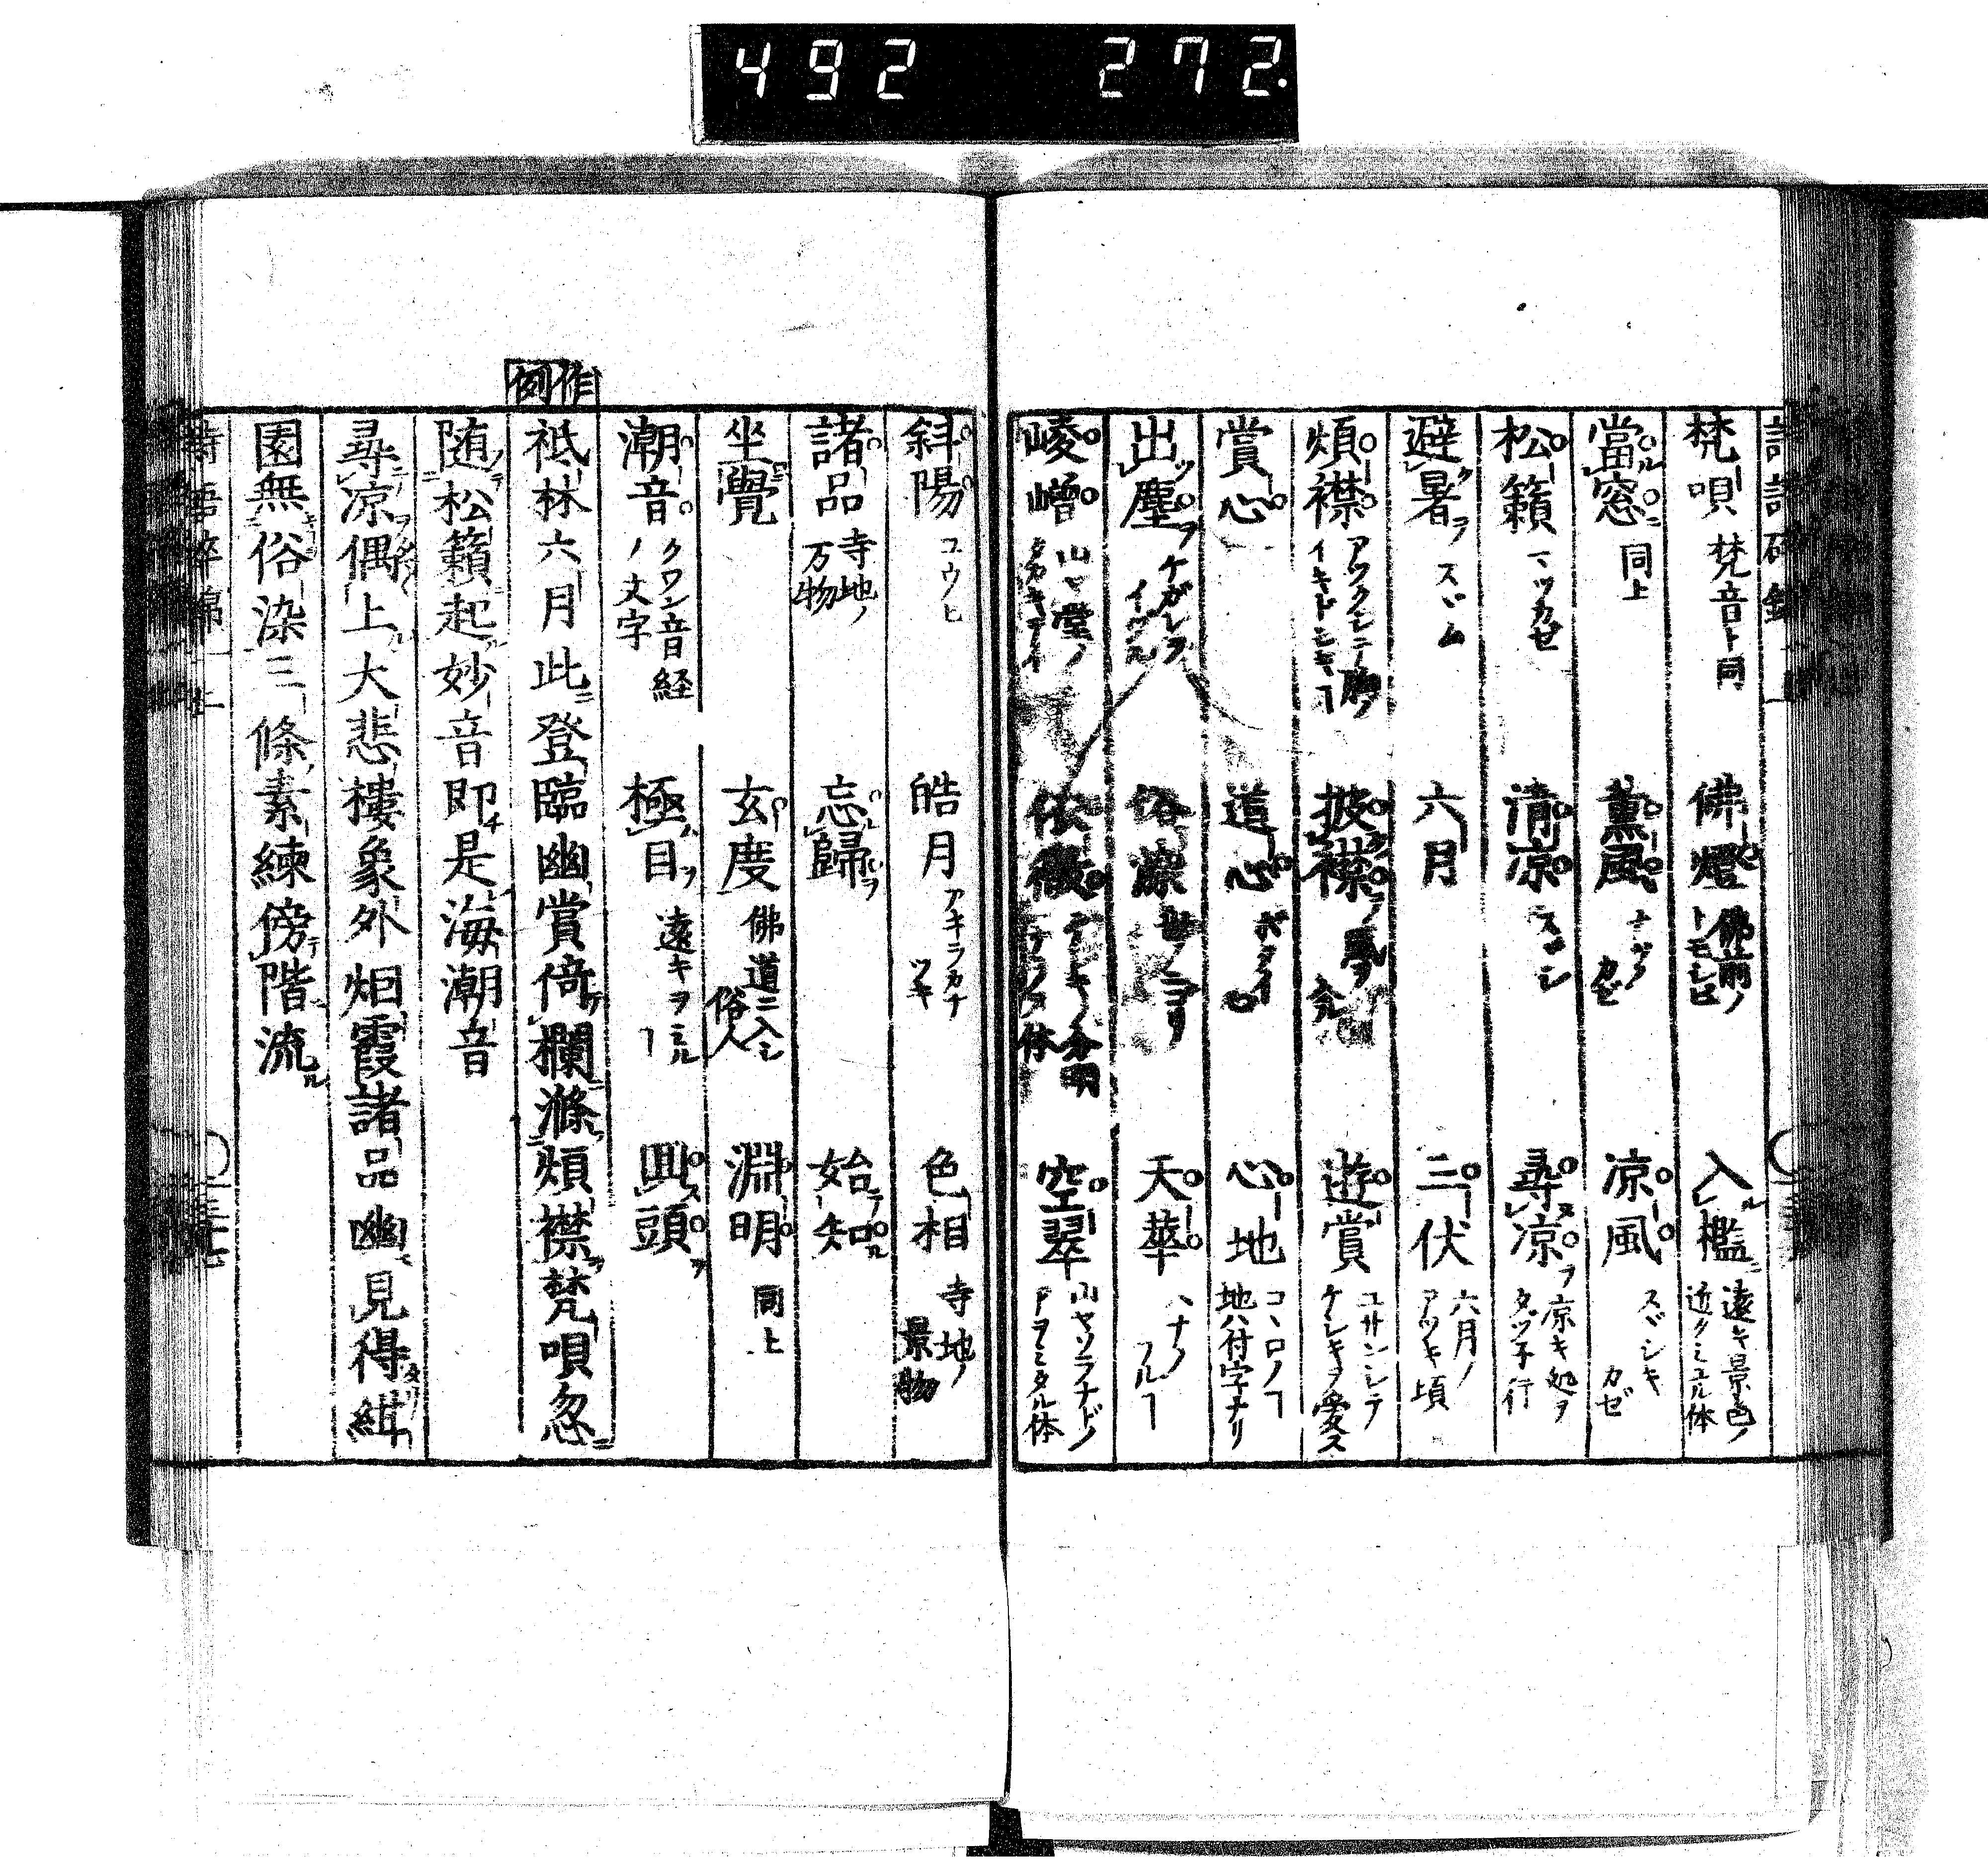 492 272.
梵唄 梵音ト同 佛燈 佛前ノトモシヒ 入檻 遠キ景色ノ近クミユル体
當窓 同上 薫風 ナツノカゼ 凉風 スヾシキカゼ
松籟 マツカゼ 清凉 スヾシ 尋凉 凉キ処ヲタツ子行
避暑 スヾム 六月 三伏 六月ノアツキ頃
煩襟 披襟 遊賞 ユサンシテケシキヲ愛ス
賞心 道心 ボダイ心 心地 コヽロノヿ地ハ付字ナリ
出塵 ケガレヲイヅル 天華 ハナノフルヿ
崚嶒 山ヤ堂ノタカキテイ 依微 空翠 山ヤソラナドノアヲミタル体
斜陽 ユウヒ 皓月 アキラカナツキ 色相 寺地ノ景物
諸品 寺地ノ万物 忘歸 始知
坐覺 玄度 佛道ニ入シ俗人 淵明 同上
潮音 クワン音経ノ文字 極目 遠キヲミルヿ 回頭
作例
祇林六月此登臨幽賞倚欄滌煩襟梵唄忽
随松籟起妙音即是海潮音
尋凉偶上大悲樓象外烟霞諸品幽見得紺
園無俗染三條素練傍階流